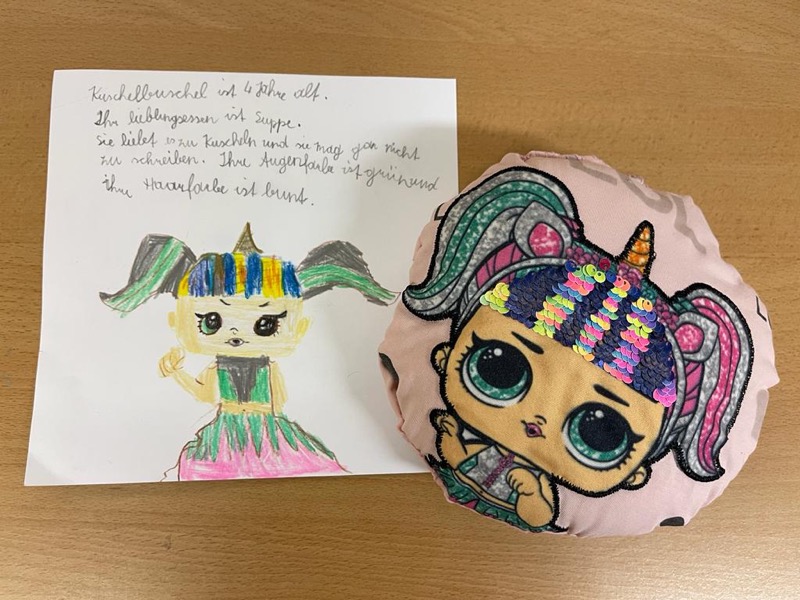 Kuschelbuschel ist 4 Jahre alt.
Ihr lieblingsessen ist Suppe.
Sie liebt es zu Kuscheln und sie mag gar nicht
zu schreiben. Ihre Augenfarbe ist grün und
ihre Haarfarbe ist bunt.